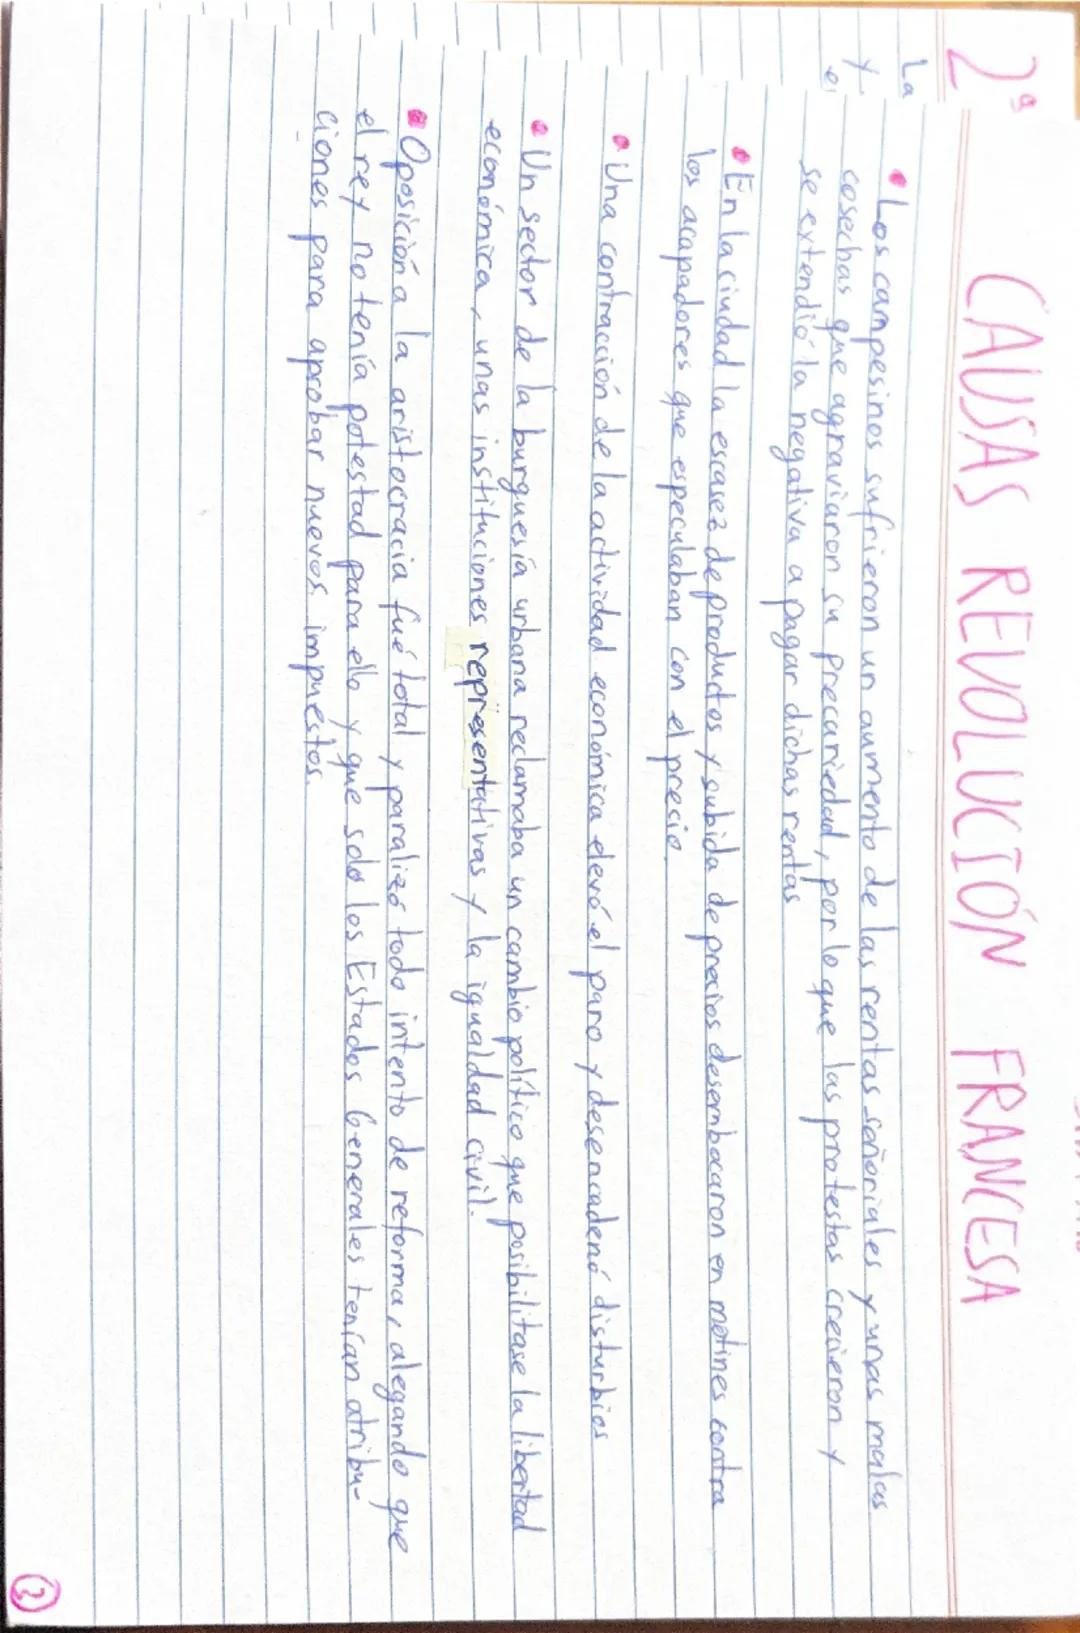 2ª CAUSAS REVOLUCIÓN FRANCESA
La
y
• Los campesinos sufrieron un aumento de las rentas señoriales y unas malas
cosechas que agraviaron su precariedad, por lo que las protestas crecieron y
se extendió la negativa a pagar dichas rentas
• En la ciudad la escasez de productos y subida de precios desembocaron en motines contra
los acapadores que especulaban con el precio.
• Una contracción de la actividad económica elevó el paro y desencadenó disturbios
• Un sector de la burguesía urbana reclamaba un cambio político que posibilitase la libertad
económica, unas instituciones representativas y la igualdad civil.
• Oposición a la aristocracia fué total y paralizó todo intento de reforma, alegando que
el rey no tenía potestad para ello y que solo los Estados Generales tenían atribu-
ciones para aprobar nuevos impuestos.